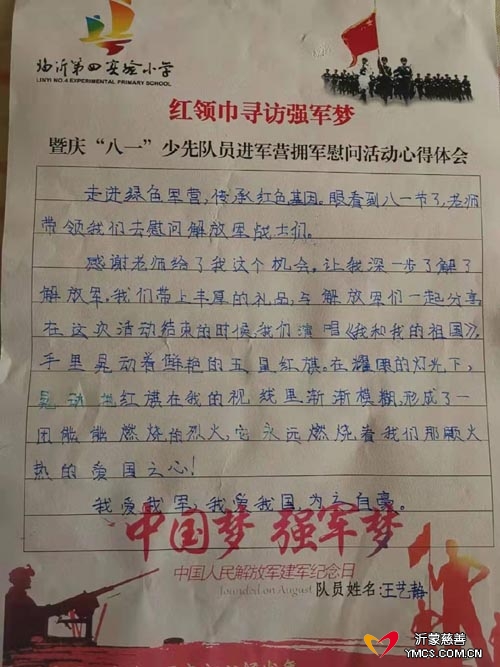 临沂第四实验小学
LINYI NO.4 EXPERIMENTAL PRIMARY SCHOOL
红领巾寻访强军梦
暨庆“八一”少先队员进军营拥军慰问活动心得体会
走进绿色军营,传承红色基因。眼看到八一节了,老师
带领我们去慰问解放军战士们。
感谢老师给了我这个机会。让我深一步了解了
解放军,我们带上丰厚的礼品,与解放军们一起分享
在这次活动结束的时候,我们演唱《我和我的祖国》,
手里晃动着鲜艳的五星红旗。在耀眼的灯光下,
晃动的红旗在我的视线里渐渐模糊,形成了一
团熊熊燃烧的烈火,它永远燃烧着我们那颗火
热的爱国之心!
我爱我军,我爱我国,为之自豪。
中国梦 强军梦
中国人民解放军建军纪念日
founded on August
队员姓名:王艺静
沂蒙慈善
YMCS.COM.CN